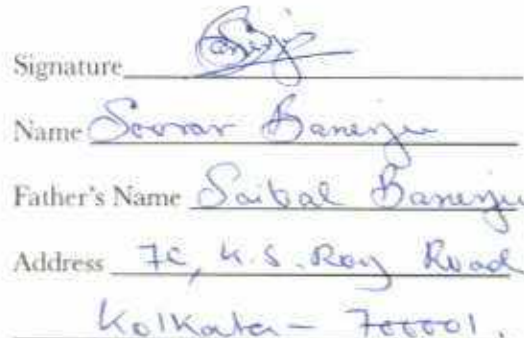 Signature
Name Sourav Banerjee
Father's Name Saibal Banerjee
Address 7C, K.S. Roy Road
Kolkata - 700001.